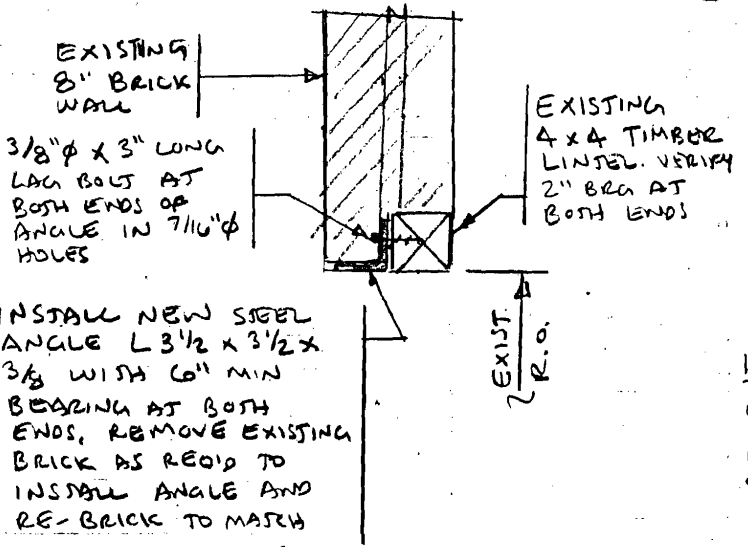 EXISTING
8" BRICK
WALL
3/8"φ X 3" LONG
LAG BOLT AT
BOTH ENDS OF
ANGLE IN 7/16"φ
HOLES
EXISTING
4 X 4 TIMBER
LINTEL. VERIFY
2" BRG AT
BOTH ENDS
INSTALL NEW STEEL
ANGLE L 3 1/2 X 3 1/2 X
3/8 WITH 6" MIN
BEARING AT BOTH
ENDS, REMOVE EXISTING
BRICK AS REQ'D TO
INSTALL ANGLE AND
RE-BRICK TO MATCH
EXIST.
R.O.